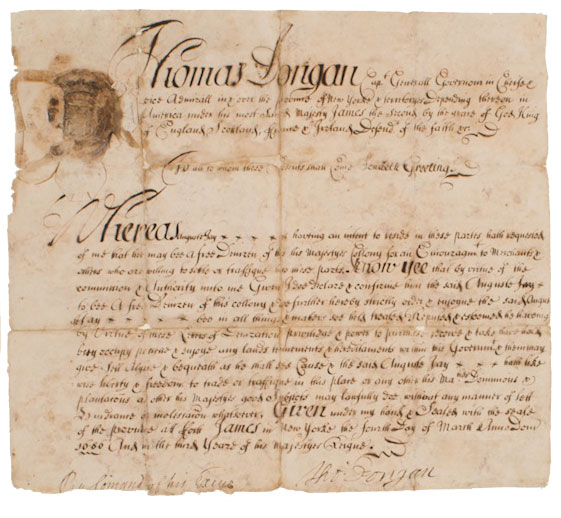 Thomas Dongan Capt Generall Governour in Cheife &
vice Admirall in & over the province of New Yorke & territoryes Depending thereon in
America under his most Sacred Majesty James the Second by the grace of God King
of England Scotland ffrance & Ireland Defendr of the faith &c
To all to whom these presents shall Come Sendeth Greeting
Whereas Auguste Jay having an intent to reside in these partes hath requested
of me that hee may bee a free Denizen of this his Majestyes Collony for an Encouragmt to Merchants &
others who are willing to settle or traffique into these parts Know Yee that by virtue of the
commission & Authority unto me Given I doe declare & confirme him the said Auguste Jay
to bee A free Denizen of this colony & doe further hereby strictly order & enjoyne the said August
Jay bee in all things & matters held treated reputed & esteemed he haveing
by Virtue of these Letters of Denization priviledge & power to purchase receive & take have hold
buy occupy possess & enjoy any lands tenements & hereditaments within this Governmt & them may
give Sell Aligne & bequeath as he shall see Cause & the said Auguste Jay hath like
wise liberty & freedom to trade or traffique in this place or any other his Maties Dominions &
plantations as other his Majestyes good subjects may lawfully doe without any manner of lett
hindrance or molestation whatsoever Given under my hand & Sealed with the seale
of the province att ffort James in New Yorke the fourth Day of March Anno Dom
And in the third Yeare of his Majestyes Reigne
By Comand of his Excie Tho: Dongan